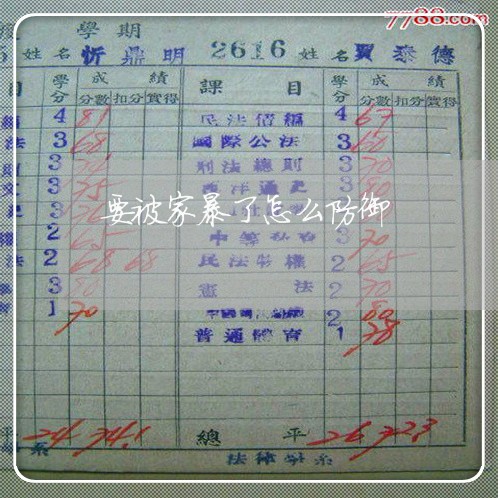 7788.com
學期
姓名 忻鼎明 2616 姓名 賈泰德
目 學分 成績 課目 學分 成績
分數 扣分 實得 分數 扣分 實得
4 81 民法債編 4 67
法 3 68 國際公法 3 60
3 刑法總則 3 70
3 75 西洋通史 3
要被家暴了怎么防御
2 65 3 70
法 2 68 68 民法物權 2 65
3 80 憲法 2 70
1 70 2 80
普通體育 1 78
平 24 74.1 總平 26 72.3
系 法律學系